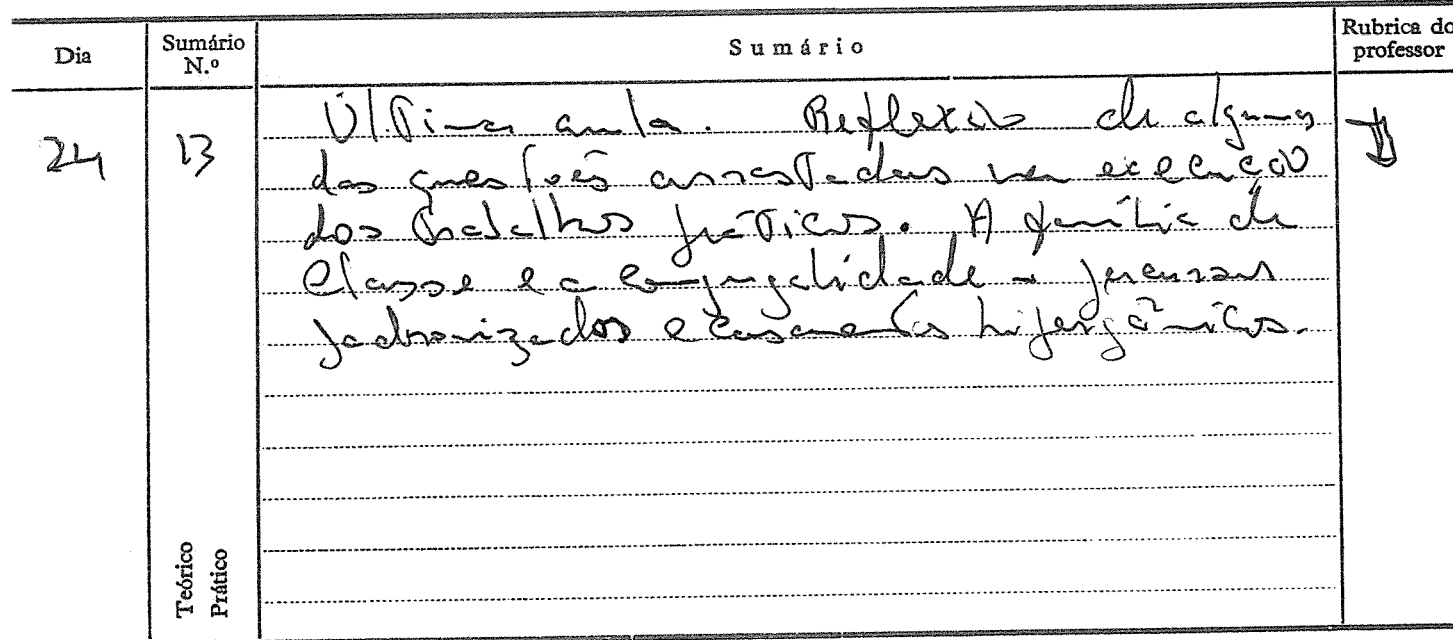 Dia
Sumário N.º
Sumário
Rubrica do professor
24
13
Última aula. Reflexão de algumas
das questões arrastadas na execução
dos trabalhos práticos. A família de
classe e a conjugalidade - percursos
padronizados e casamentos hipergâmicos.
Teórico
Prático